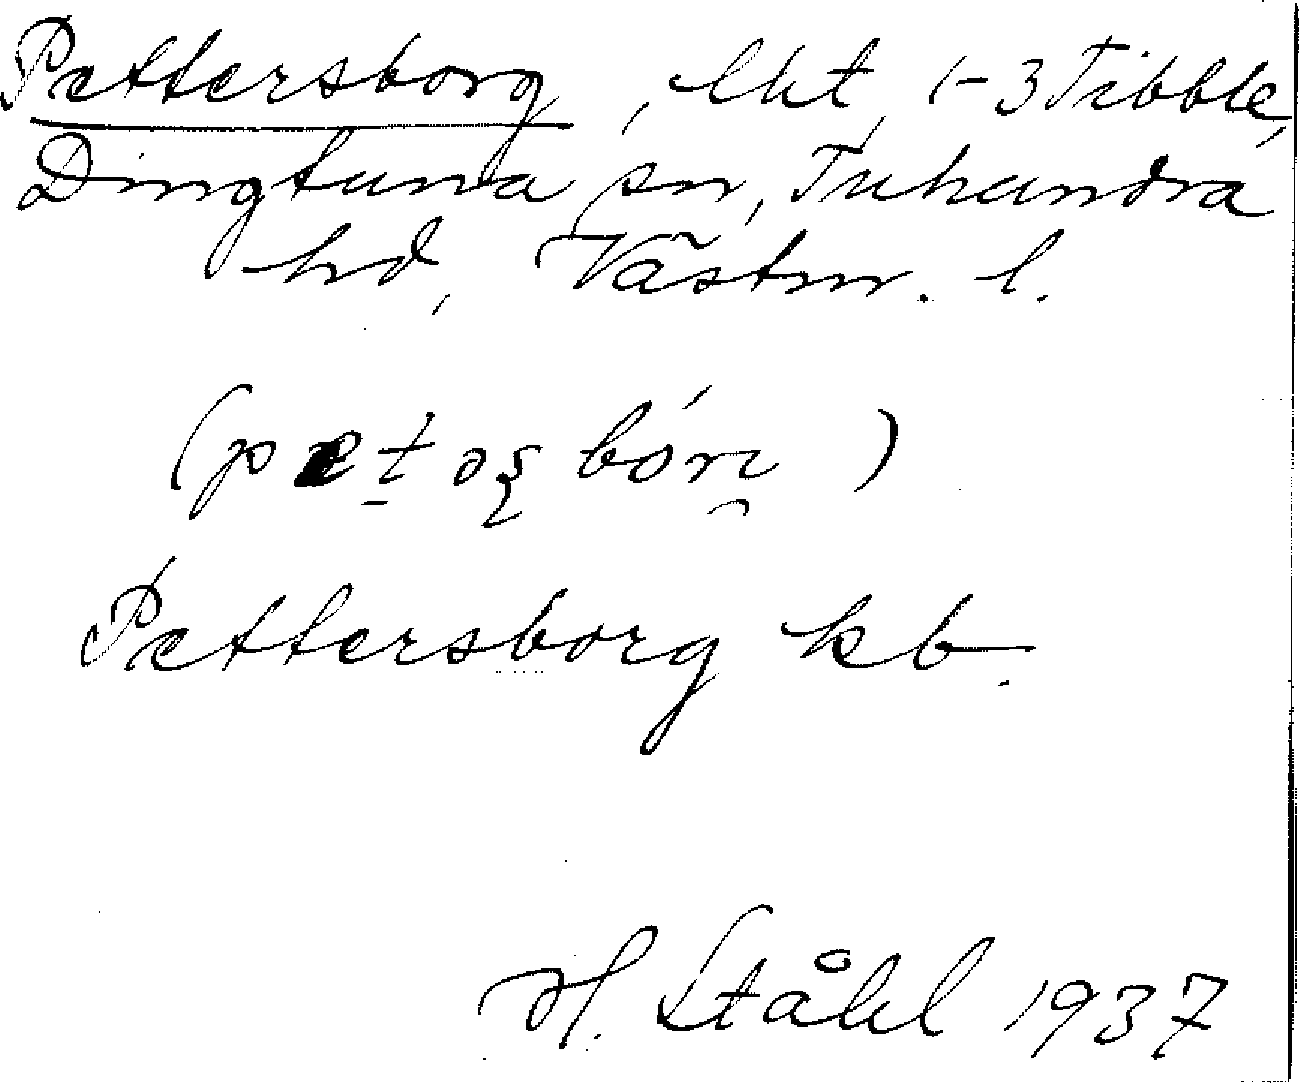 Pettersborg, lht, 1-3 Tibble,
Dingtuna sn, Tuhundra
hd, Västm. l.
Pettersborg kb.
H. Ståhl 1937